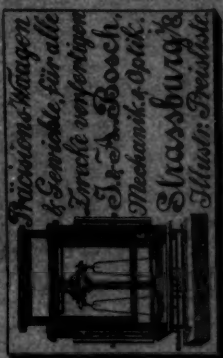 Präcisions-Waagen
& Gewichte, für alle
Zwecke verfertigen
J. & A. Bosch,
Mechanik. & Optik.
Strassburg i/E
Illustr. Preisliste.